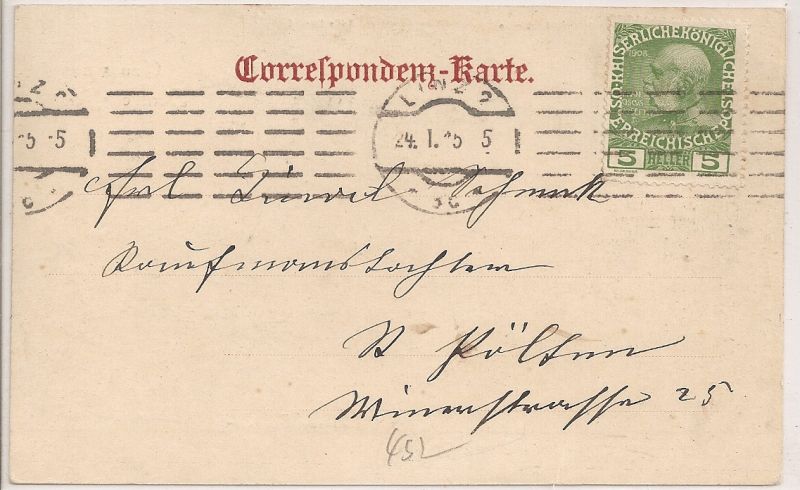 Correspondenz-Karte.
LINZ 2
24. I. 15 5
3c
KAISERLICHEKÖNIGLICHE
ÖSTERREICHISCHE POST
1908
5 HELLER 5
Frl
Kaufmannstochter
St Pölten
Wienerstrasse 25
452